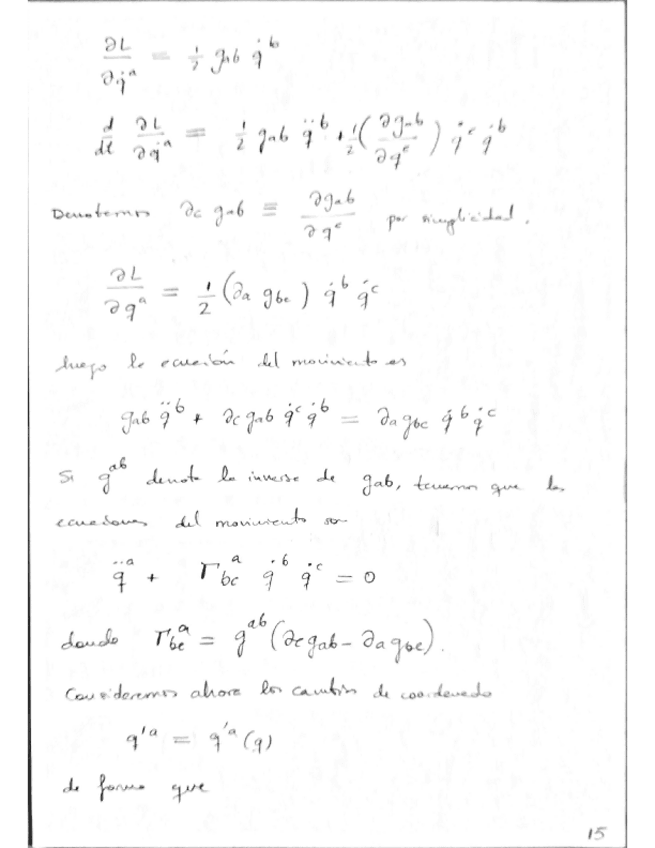 ∂L/∂q̇ᵃ = ½ g_ab q̇ᵇ
d/dt ∂L/∂q̇ᵃ = ½ g_ab q̈ᵇ + ½ (∂g_ab/∂qᶜ) q̇ᶜ q̇ᵇ
Denotemos ∂c g_ab ≡ ∂g_ab/∂qᶜ por simplicidad.
∂L/∂qᵃ = ½ (∂a g_bc) q̇ᵇ q̇ᶜ
luego la ecuación del movimiento es
g_ab q̈ᵇ + ∂c g_ab q̇ᶜ q̇ᵇ = ∂a g_bc q̇ᵇ q̇ᶜ
Si gᵃᵇ denota la inversa de g_ab, tenemos que las
ecuaciones del movimiento son
q̈ᵃ + Γ_bcᵃ q̇ᵇ q̇ᶜ = 0
donde Γ_bcᵃ = gᵃᵇ (∂c g_ab - ∂a g_bc).
Consideremos ahora los cambios de coordenadas
q'ᵃ = q'ᵃ (q)
de forma que
15